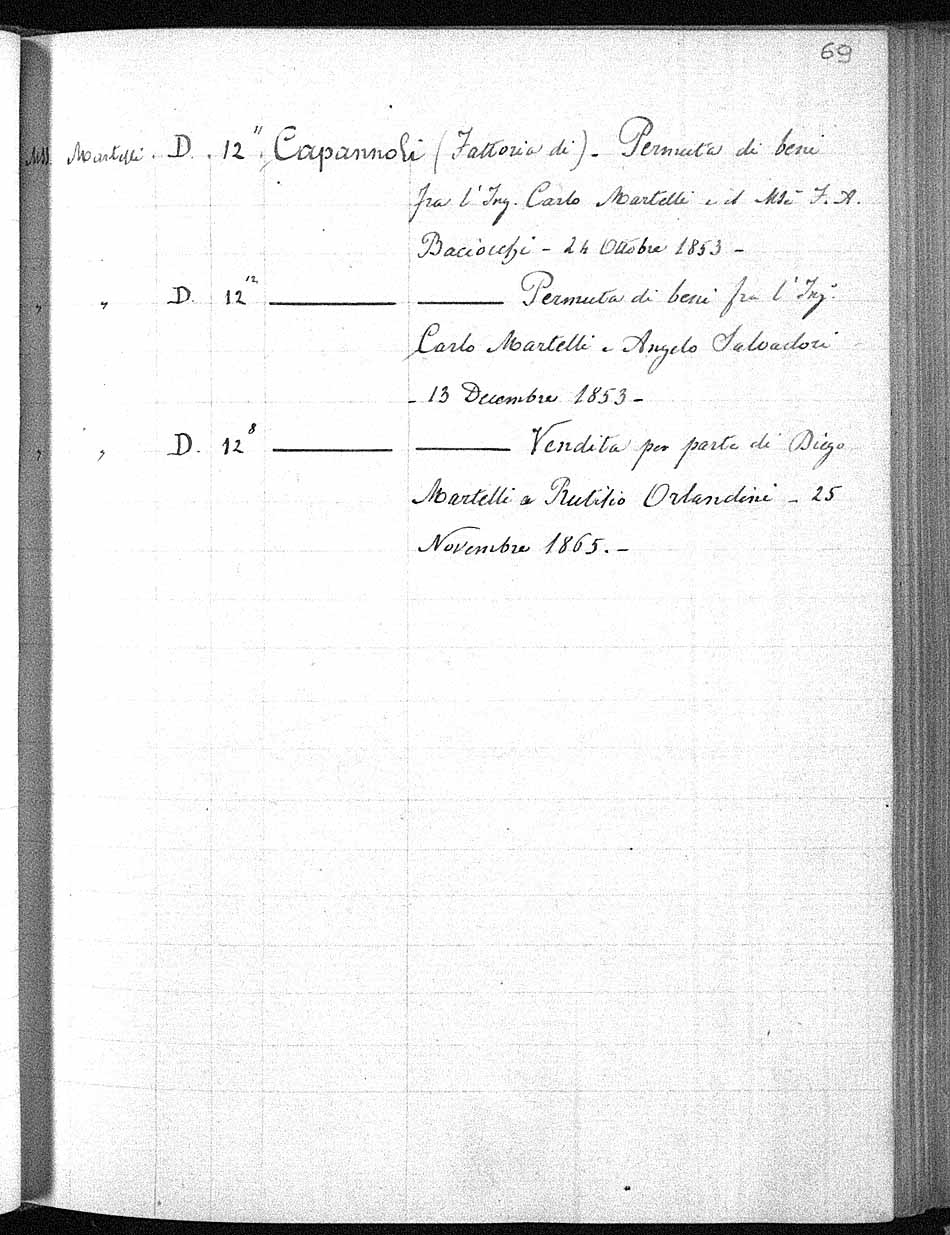 69
Mss. Martelli. D. 12¹¹. Capannoli (Fattoria di) - Permuta di beni
fra l'Ing. Carlo Martelli e il Mse F. A.
Baciocchi - 24 Ottobre 1853 -
" " D. 12¹² ——— ——— Permuta di beni fra l'Ing.
Carlo Martelli e Angelo Salvadori
- 13 Decembre 1853 -
" " D. 12⁸ ——— ——— Vendita per parte di Diego
Martelli a Rutilio Orlandini - 25
Novembre 1865. -